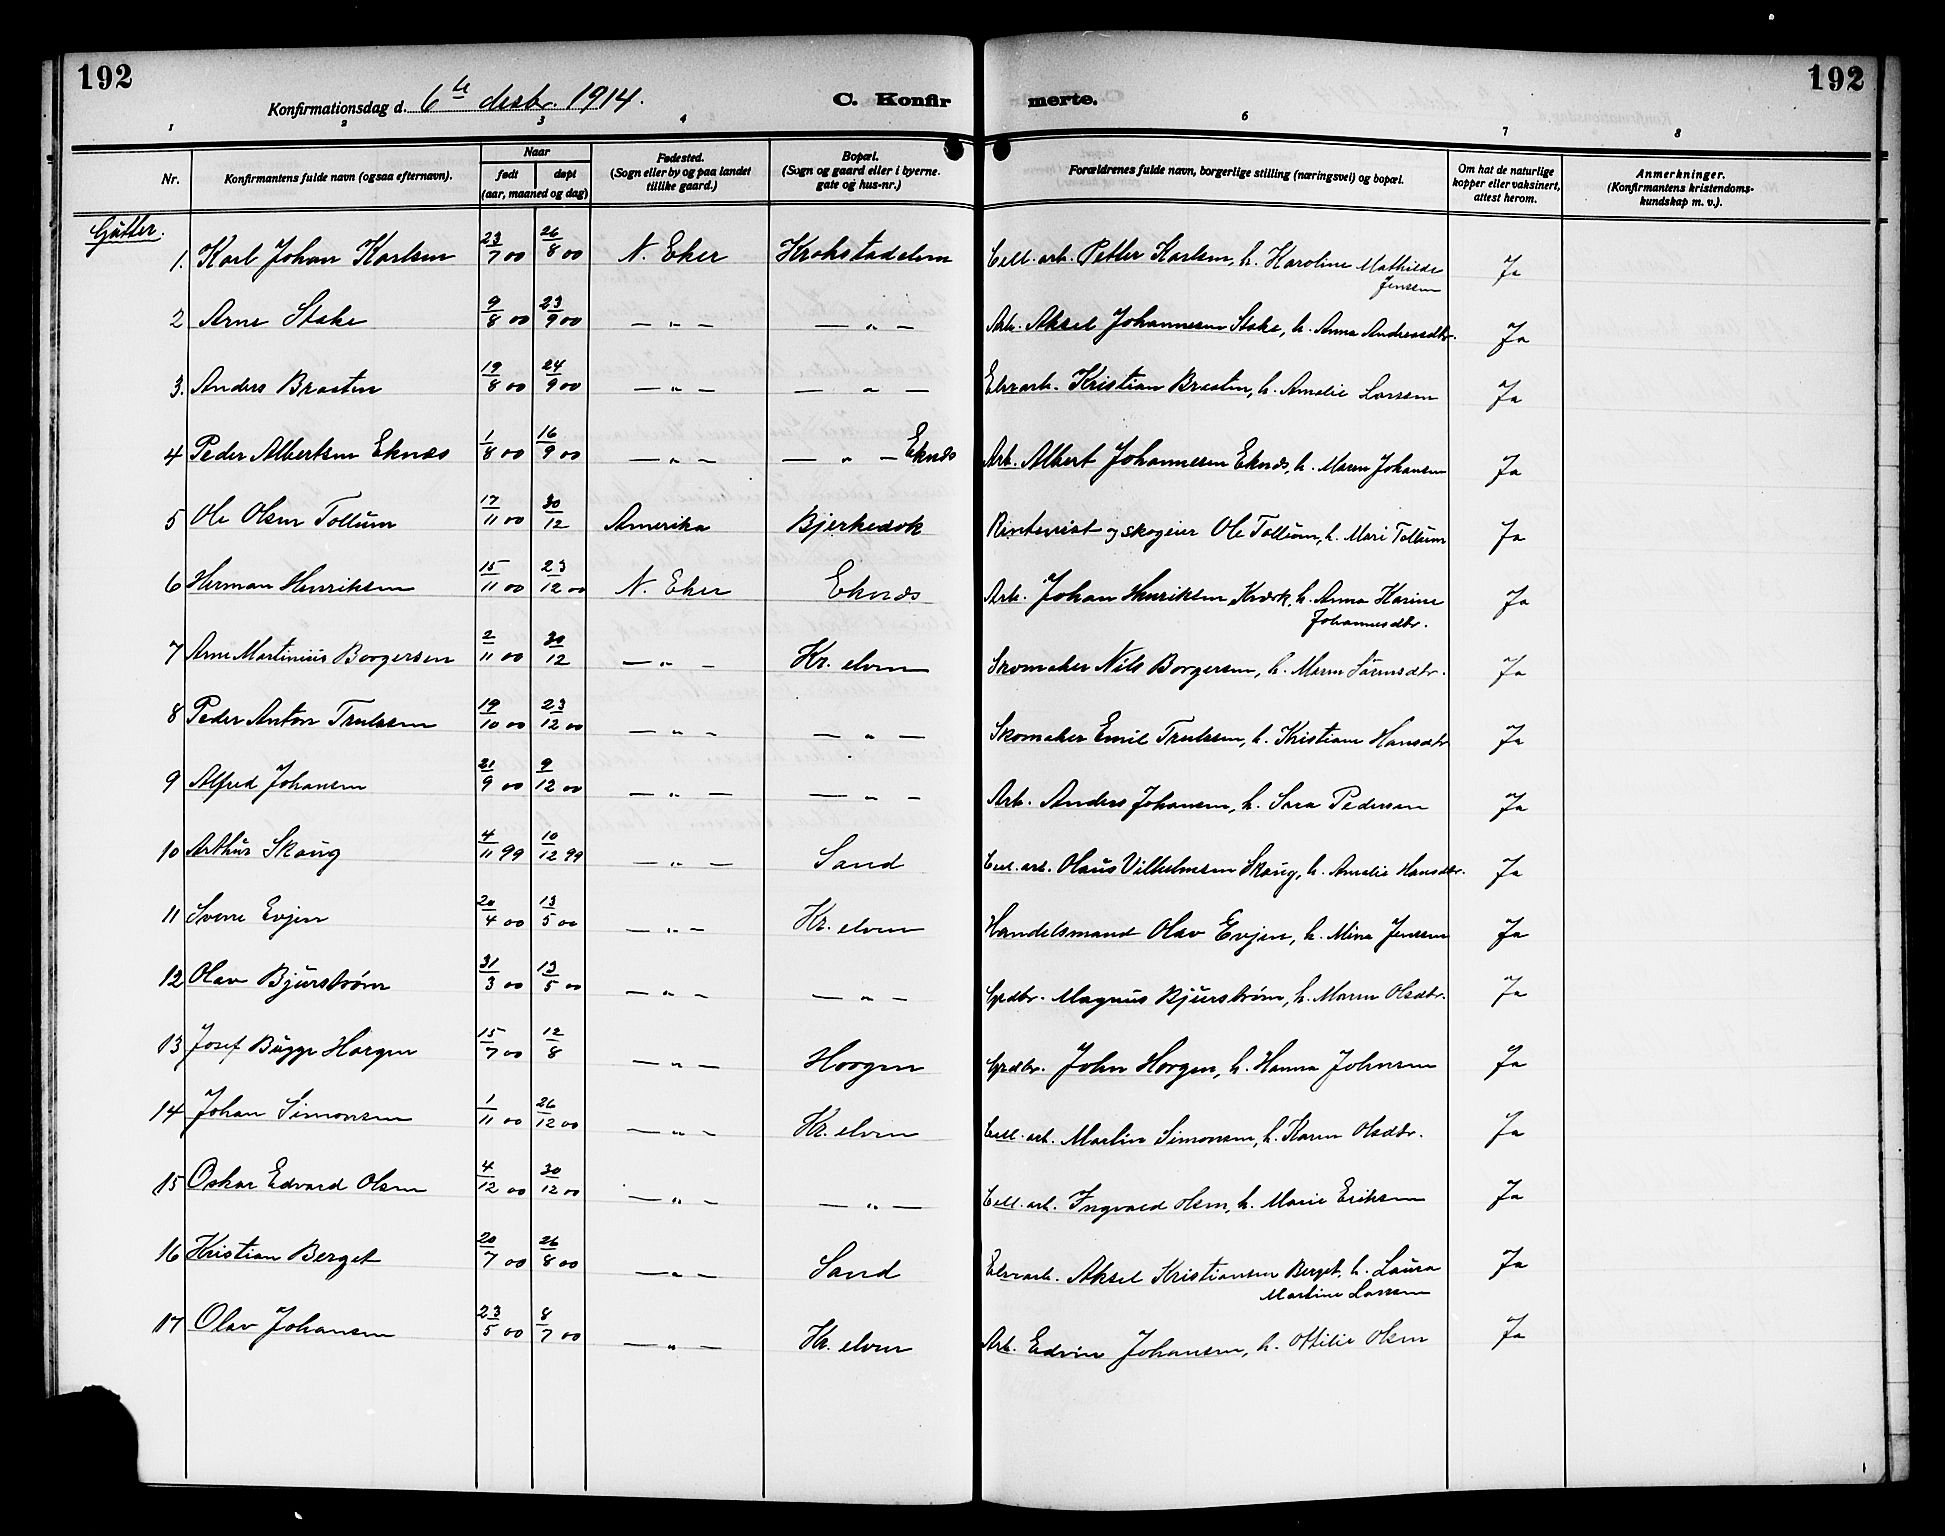 192
Konfirmationsdag d. 6te desbr. 1914.
C. Konfirmerte.
192
1 2 3 4 6 7 8
Nr.
Konfirmantens fulde navn (ogsaa efternavn).
Naar
født døpt
(aar, maaned og dag)
Fødested.
(Sogn eller by og paa landet
tillike gaard.)
Bopæl.
(Sogn og gaard eller i byerne.
gate og hus-nr.)
Forældrenes fulde navn, borgerlige stilling (næringsvei) og bopæl.
Om hat de naturlige
kopper eller vaksinert,
attest herom.
Anmerkninger.
(Konfirmantens kristendoms-
kundskap m. v.).
Gutter.
1. Karl Johan Karlsen 23/7 00 26/8 00 N. Eker Krokstadelven Cell. arb. Petter Karlsen, h. Karoline Mathilde Ja
Jensen
2 Arne Stake 9/8 00 23/9 00 — „ — — „ — Arb. Aksel Johannesen Stake, h. Anna Andreasdtr. Ja
3. Anders Braaten 19/8 00 24/9 00 — „ — — „ — Elvearb. Kristian Braaten, h. Amalie Larsen Ja
4 Peder Albertsen Eknæs 1/8 00 16/9 00 — „ — — „ — Eknæs Arb. Albert Johannesen Eknæs, h. Maren Johansen Ja
5 Ole Olsen Tollum 17/11 00 30/12 Amerika Bjerkedok Rentenist og skogeier Ole Tollum, h. Mari Tollum Ja
6 Herman Henriksen 15/11 00 23/12 00 N. Eker Eknæs Arb. Johan Henriksen Kværk, h. Anna Karine Ja
Johannesdtr.
7 Arne Martinius Borgersen 2/11 00 30/12 — „ — Kr. elven Skomaker Nils Borgersen, h. Maren Sørensdtr. Ja
8 Peder Anton Trulssen 19/10 00 23/12 00 — „ — — „ — Skomaker Emil Trulssen, h. Kristiane Hansdtr Ja
9 Alfred Johansen 21/9 00 9/12 00 — „ — — „ — Arb. Anders Johansen, h. Sara Pedersen Ja
10 Arthur Skaug 4/11 99 10/12 99 — „ — Sand Cell. arb. Olaus Vilhelmsen Skaug, h. Amalie Hansdtr. Ja
11 Sverre Evjen 20/4 00 13/5 00 — „ — Kr. elven Handelsmand Olav Evjen, h. Mina Jensen Ja
12 Olav Bjurstrøm 31/3 00 13/5 00 — „ — — „ — Grdbr. Magnus Bjurstrøm, h. Maren Olsdtr. Ja
13 Josef Bugge Horgen 15/7 00 12/8 — „ — Horgen Grdbr. John Horgen, h. Hanna Johnsen Ja
14 Johan Simonsen 1/11 00 26/12 00 — „ — Kr. elven Cell. arb. Martin Simonsen, h. Karen Olsdtr. Ja
15 Oskar Edvard Olsen 4/12 00 30/12 00 — „ — — „ — Cell. arb. Ingvald Olsen, h. Marie Eriksen Ja
16 Kristian Berget 20/7 00 26/8 00 — „ — Sand Elvearb. Aksel Kristiansen Berget, h. Laura Ja
Martine Larsen
17 Olav Johansen 23/5 00 8/7 00 — „ — Kr. elven Arb. Edvin Johansen, h. Ottilie Olsen Ja